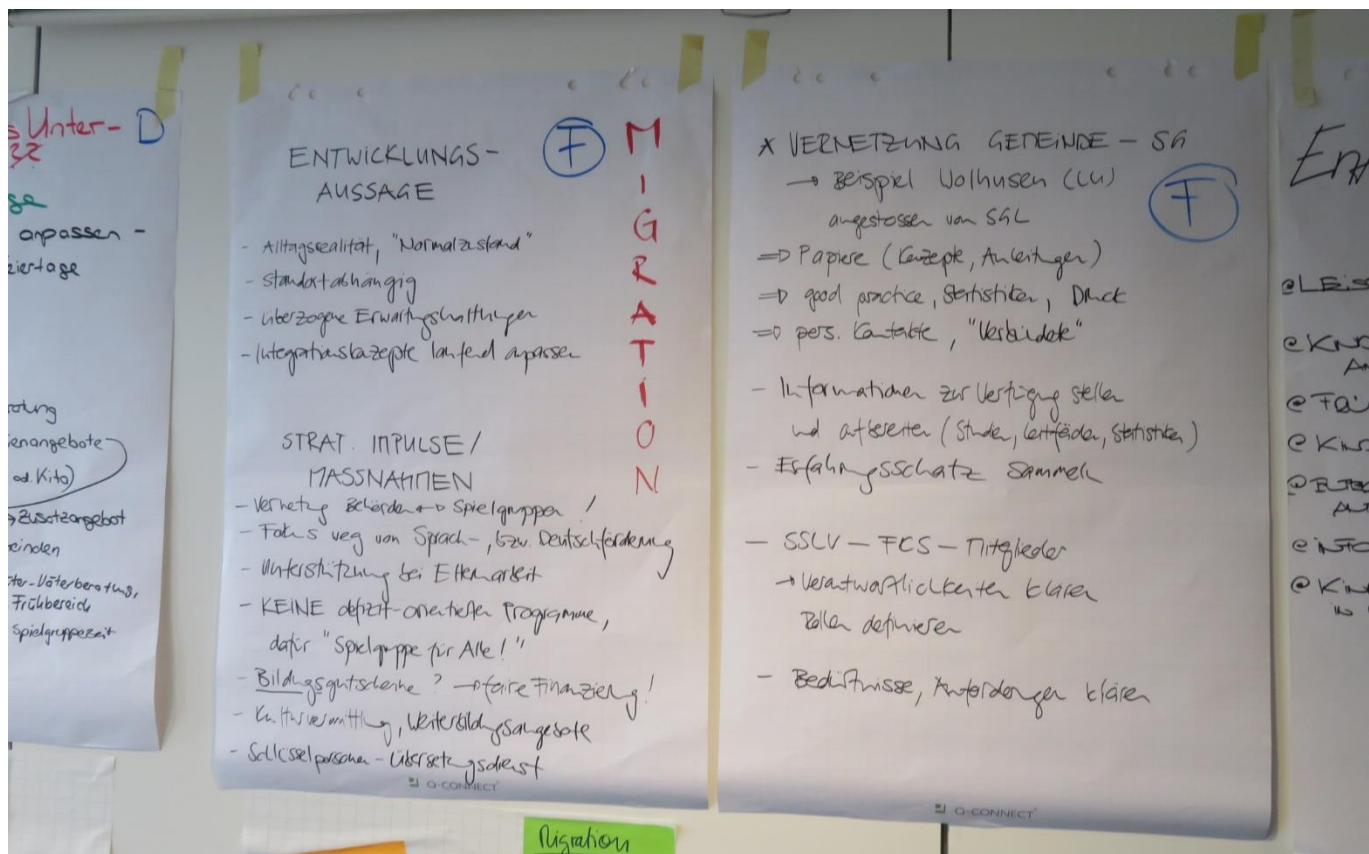 s Unter- D
anpassen -
iertage
ienangebote
od. Kita)
→ Zusatzangebot
einden
ter-Väterberatung,
Frühbereich
Spielgruppezeit
ENTWICKLUNGS-
AUSSAGE
F
MIGRATION
- Alltagsrealität, "Normalzustand"
- Standortabhängig
- überzogene Erwartungshaltungen
- Integrationskonzepte laufend anpassen
STRAT. IMPULSE/
MASSNAHMEN
- Vernetzung Behörden ↔ Spielgruppen!
- Fokus weg von Sprach-, bzw. Deutschförderung
- Unterstützung bei Elternarbeit
- KEINE defizit-orientierten Programme,
dafür "Spielgruppe für Alle!"
- Bildungsgutscheine? → faire Finanzierung!
- Kulturvermittlung, Weiterbildungsangebote
- Schlüsselpersonen - Übersetzungsdienst
Q-CONNECT
* VERNETZUNG GEMEINDE - SG
→ Beispiel Wolhusen (LU)
angestossen von SGL
F
⇒ Papiere (Konzepte, Anleitungen)
⇒ good practice, Statistiken, Druck
⇒ pers. Kontakte, "Verbündete"
- Informationen zur Verfügung stellen
und aufbereiten (Studien, Leitfäden, Statistiken)
- Erfahrungsschatz sammeln
- SSLV - FCS - Mitglieder
→ Verantwortlichkeiten klären
Rollen definieren
- Bedürfnisse, Anforderungen klären
Q-CONNECT
Migration